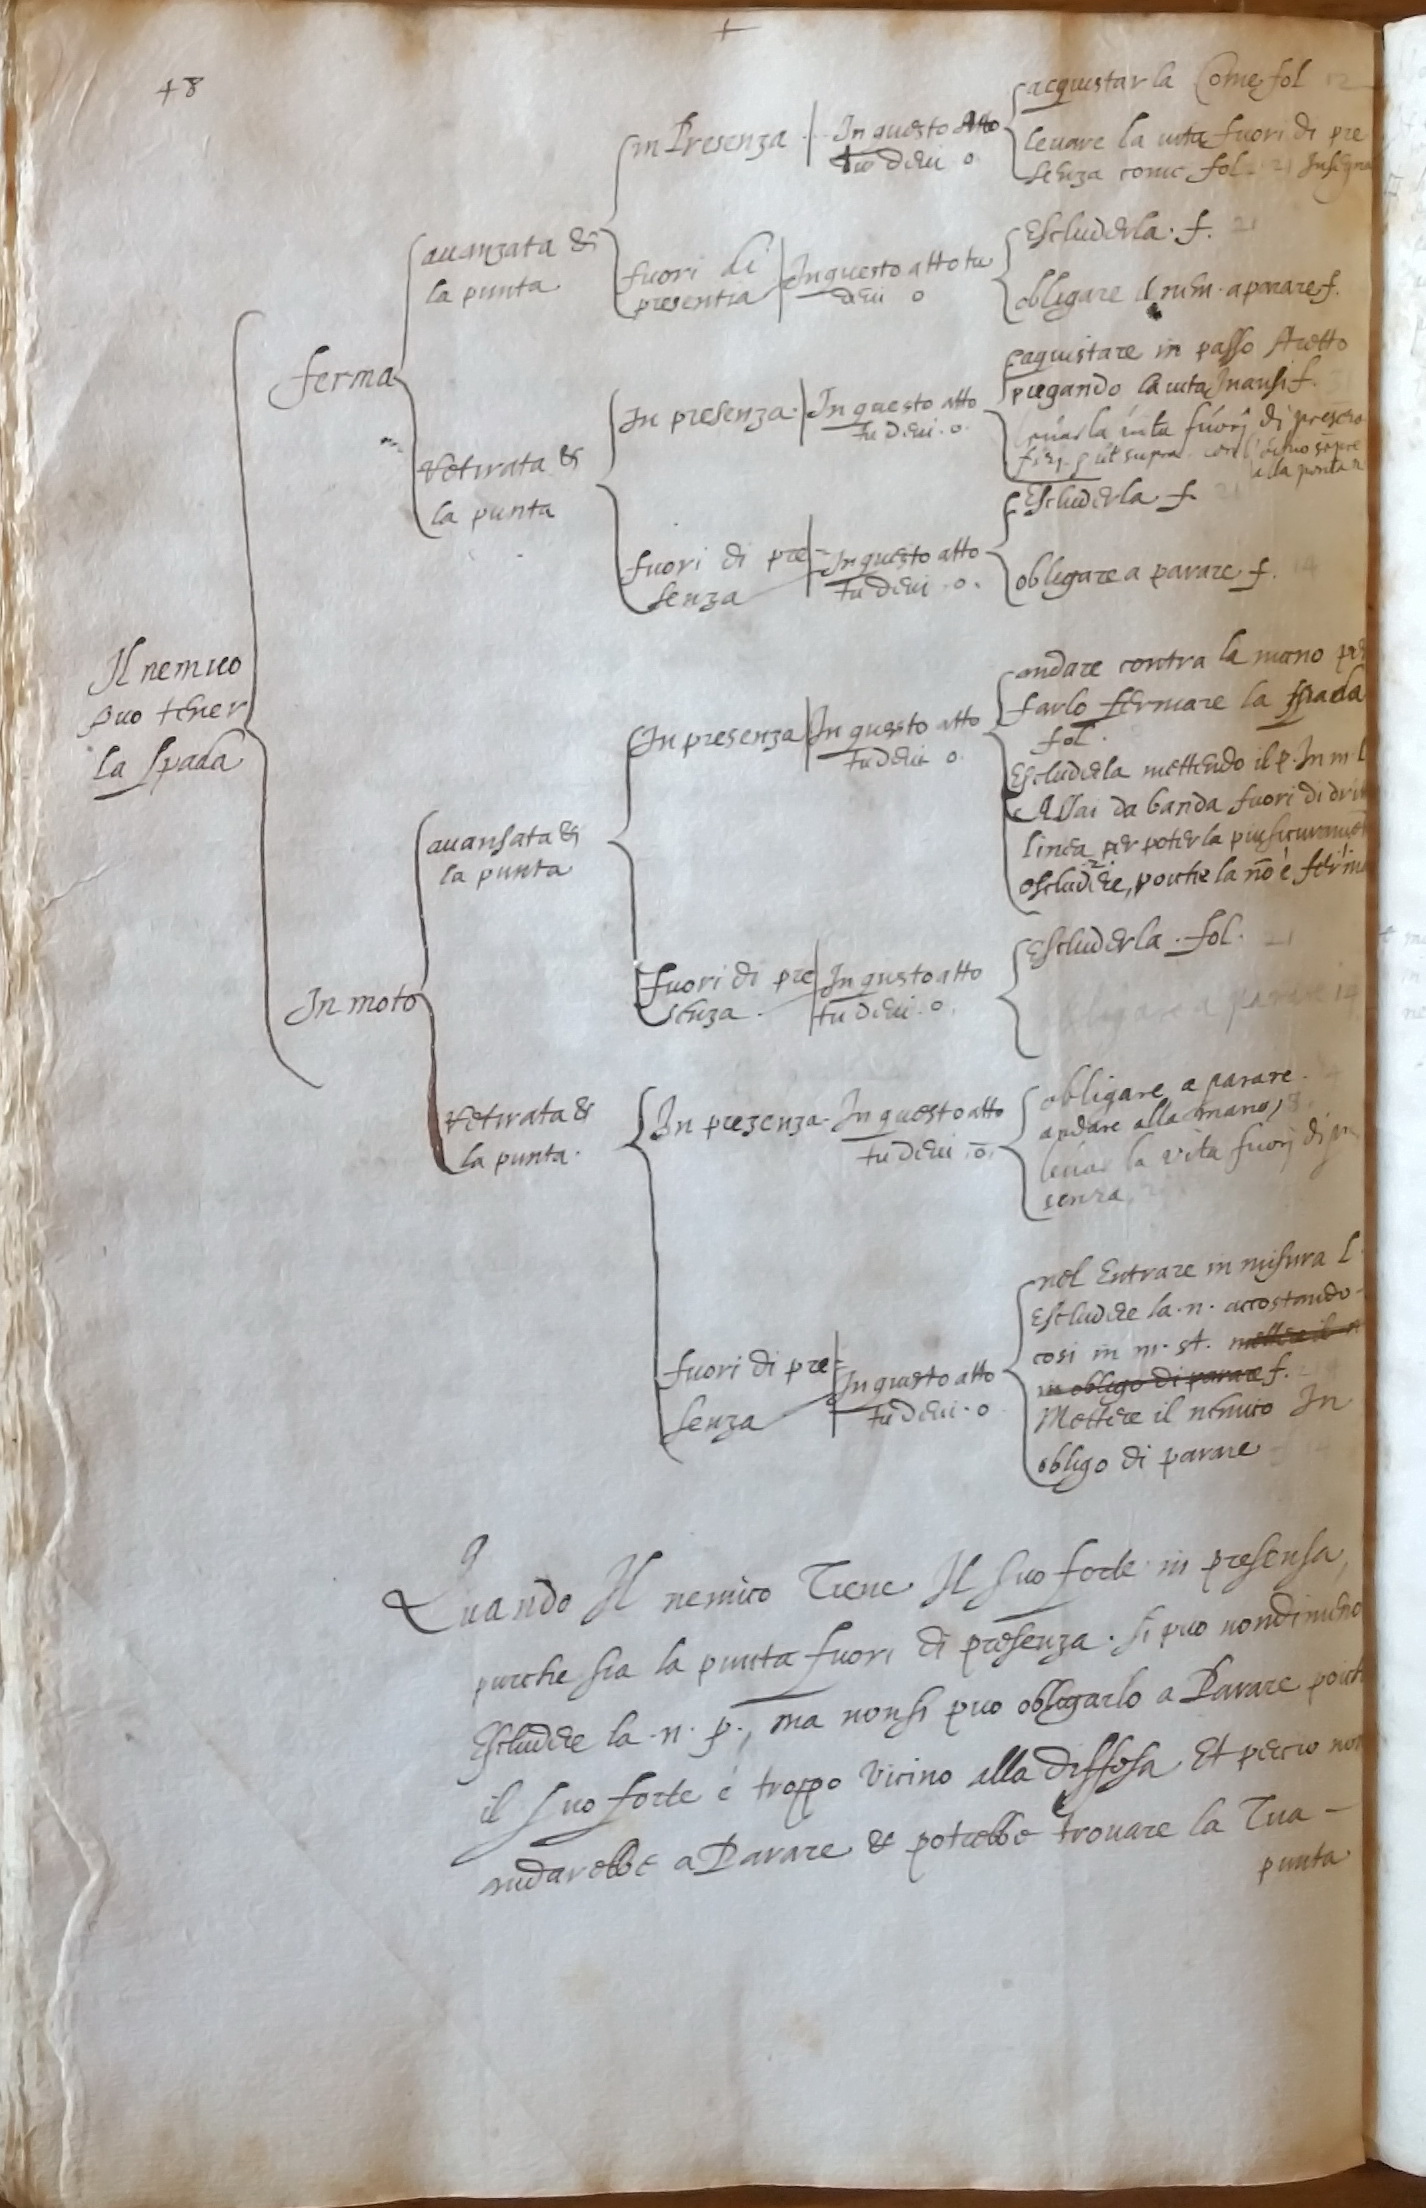 48
Il nemico
puo tener
la spada
ferma
avanzata &
la punta
in Presenza
In questo Atto
tu devi o
acquistarla Come fol 12
levare la vita fuori di pre
senza come fol 21 Insegna
fuori di
presentia
In questo atto tu
devi o
Escluderla. f. 21
obligare il nem. a parare f.
Retirata &
la punta
In presenza
In questo atto
tu devi .o.
aquistare in passo stretto
piegando la vita Inansi f.
levar la vita fuorj di presenza
ut supra
alla ponta
fuori di pre=
senza
In questo atto
tu devi .o.
Escluderla f. 21
obligare a parare f. 14
In moto
avansata &
la punta
In presenza
In questo atto
tu devi o.
andare contra la mano per
farlo fermare la spada
fol.
Escluderla mettendo il p. In m. l
Assai da banda fuori di drit
linea per poterla piu sicurament
escludere, poiche la no e ferma
Fuori di pre
senza.
In questo atto
tu devi .o.
Escluderla. fol. 21
obligare a parare 14
Retirata &
la punta.
In prezenza.
In questo atto
tu devi .o.
obligare a parare.
andare alla mano,
levar la vita fuorj di pre
senza
fuori di pre=
senza
In questo atto
tu devi .o
nel Entrare in misura l.
Escludere la .n. accostando-
cosi in m. st. mettere il n
in obligo di parare f.
Mettere il nemico In
obligo di parare 14
Quando Il nemico Tiene Il suo forte in presensa,
purche sia la punta fuori di presenza. si puo nondimeno
Escludere la .n. p., ma non si puo obligarlo a Parare poich
il suo forte é troppo vicino alla diffesa Et percio non
andarebbe a Parare & potrebbe trovare la Tua -
punta